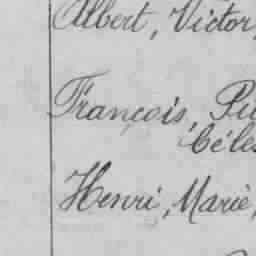 Albert, Victor,
François,
Henri, Marie,